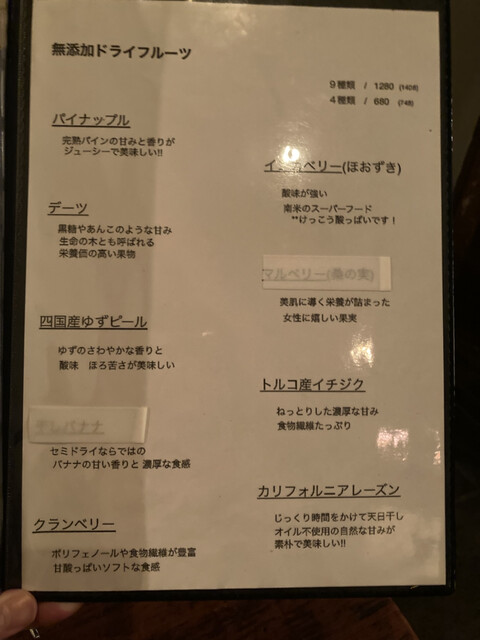 無添加ドライフルーツ
9種類 / 1280 (1408)
4種類 / 680 (748)
パイナップル
完熟パインの甘みと香りが
ジューシーで美味しい!!
デーツ
黒糖やあんこのような甘み
生命の木とも呼ばれる
栄養価の高い果物
四国産ゆずピール
ゆずのさわやかな香りと
酸味 ほろ苦さが美味しい
干しバナナ
セミドライならではの
バナナの甘い香りと 濃厚な食感
クランベリー
ポリフェノールや食物繊維が豊富
甘酸っぱいソフトな食感
ベリー(ほおずき)
酸味が強い
南米のスーパーフード
**けっこう酸っぱいです！
マルベリー(桑の実)
美肌に導く栄養が詰まった
女性に嬉しい果実
トルコ産イチジク
ねっとりした濃厚な甘み
食物繊維たっぷり
カリフォルニアレーズン
じっくり時間をかけて天日干し
オイル不使用の自然な甘みが
素朴で美味しい!!